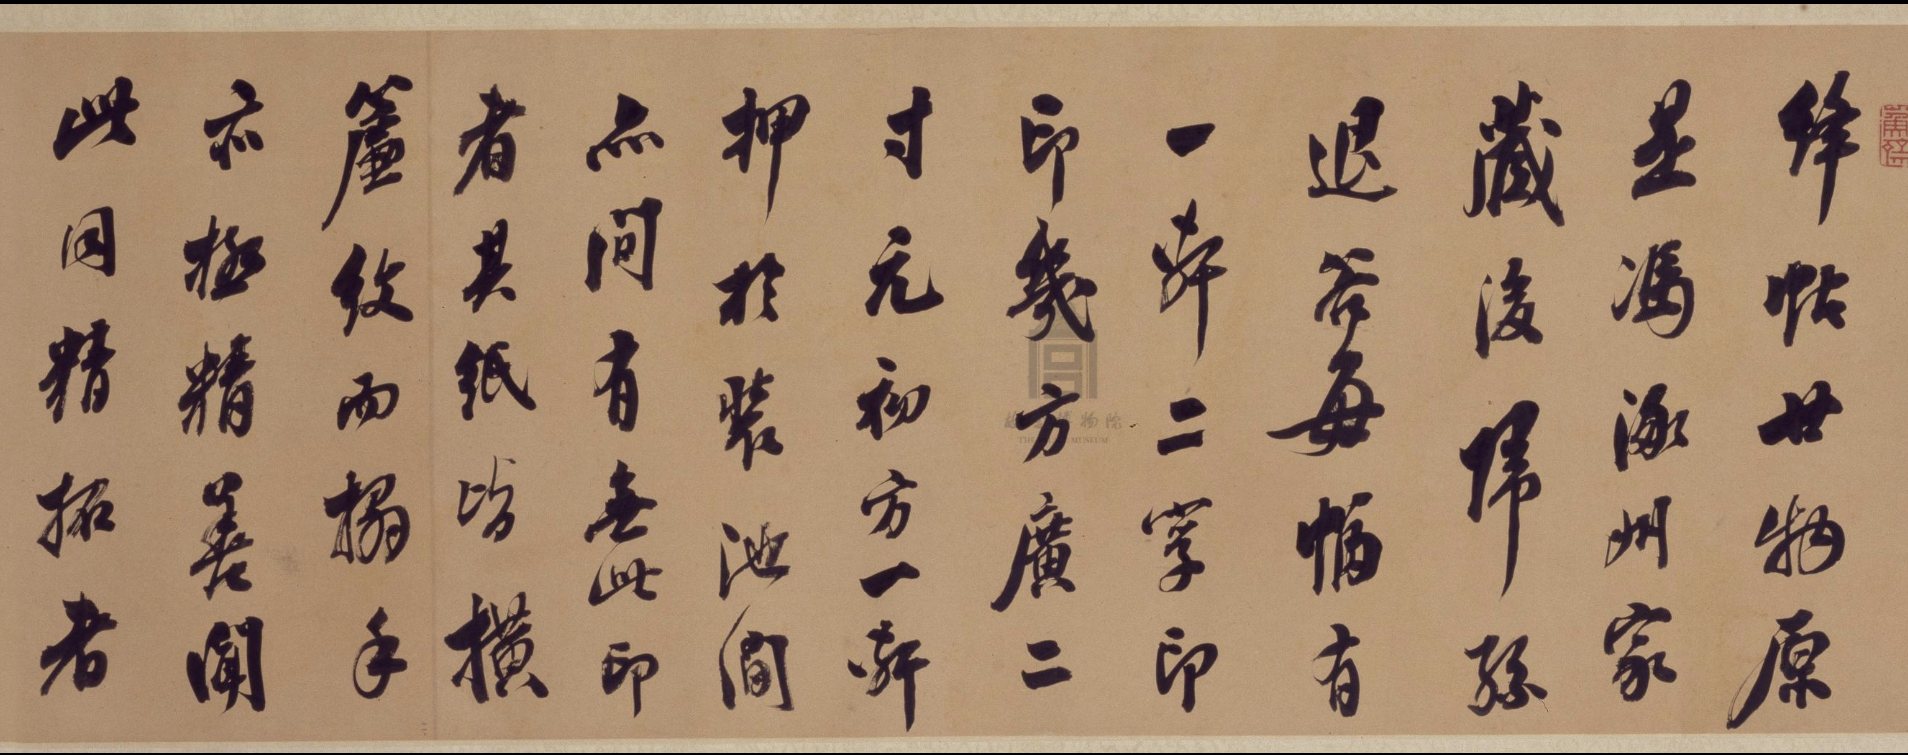 絳帖廿物原
是馮涿州家
藏後歸孫
退谷每幅有
一軒二字印
印幾方廣二
寸元初方一軒
押於裝池間
亦間有無此印
者其紙皆橫
簾紋而搨手
亦極精善聞
此同精拓者